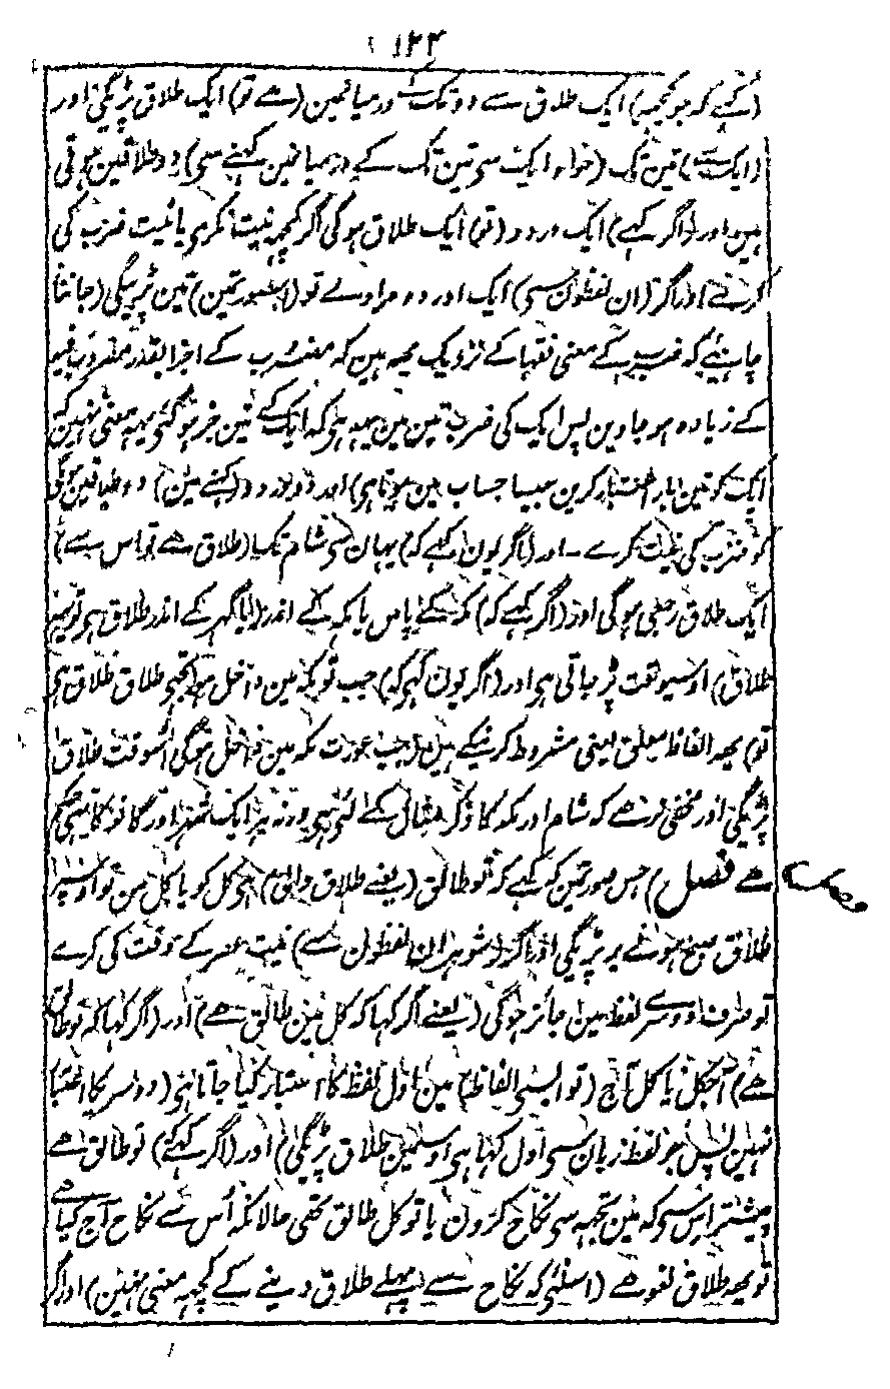 ۱۲۴
(کہے کہ جو تجھپر) ایک طلاق سے دو تک کے درمیانمین (ہے تو) ایک طلاق پڑیگی اور
(ایک سے) تین تک (خواہ ایک سی تین تک کے درمیانمین کہنے سی) دو طلاقین ہوتی
ہین اور (اگر کہے) ایک در دو (تو) ایک طلاق ہوگی اگر کچھہ نیت نکری یا نیت ضرب کی
کرے اور اگر (ان لفظون سی) ایک اور دو مراد لے تو (اسصورتمین) تین پڑینگی (جاننا
چاہئے کہ ضرب کے معنی فقہا کے نزدیک یہہ ہین کہ مضروب کے اجزا بقدر مضروب فیہ
کے زیادہ ہو جاوین پس ایک کی ضرب تین مین یہہ ہی کہ ایک کے تین جز ہو گئے یہہ معنی نہین کہ
ایک کو تین بار اعتبار کرین جیسا حساب مین ہوتا ہی) اور دو در دو (کہنے مین) دو طلاقین ہونگی
گو ضرب کی نیت کرے ۔ اور (اگر یون کہے کہ) یہان سی شام تک (طلاق ہے تو اس سے)
ایک طلاق رجعی ہوگی اور (اگر کہے کہ) مکہ کے پاس یا مکہ کے اندر یا گہر کے اندر طلاق ہی تو یہہ
طلاق) اوسیوقت پڑ جاتی ہی اور (اگر یون کہی کہ) جب تو مکہ مین داخل ہو تجھپر طلاق طلاق ہی
تو) یہہ الفاظ معلق یعنی مشروط کرنیکے ہین (جب عورت مکہ مین داخل ہوگی اُسوقت طلاق
پڑیگی اور مخفی نرہے کہ شام اور مکہ کا ذکر مثال کے لئے ہی ورنہ ہر ایک شہر اور گانو کا یہی حکم
ہے فصل) جس صورتمین کہ کہے کہ تو طالق (یعنے طلاق والی) ہی کل کو یا کل مین تو اوسپر
طلاق صبح ہونے پر پڑیگی اور اگر (شوہر ان لفظون سے) نیت عصر کے وقت کی کرے
تو صرف دوسرے لفظ مین جائز ہوگی (یعنے اگر کہا کہ کل مین طالق ہے) اور (اگر کہا کہ تو طالق
ہے) آجکل یا کل آج (تو ایسی الفاظ) مین اول لفظ کا اعتبار کیا جاتا ہی (دوسریکا اعتبا
نہین پس جو لفظ زبان سی اول کہا ہی اوسمین طلاق پڑیگی) اور (اگر کہے کہ) تو طالق ہے
پیشتر اس سی کہ مین تجھہ سی نکاح کرون یا تو کل طالق تھی حالانکہ اُس سے نکاح آج کیا ہے
تو یہہ طلاق لغو ہے (اسلئے کہ نکاح سے پہلے طلاق دینے کے کچھہ معنی نہین) اور اگر